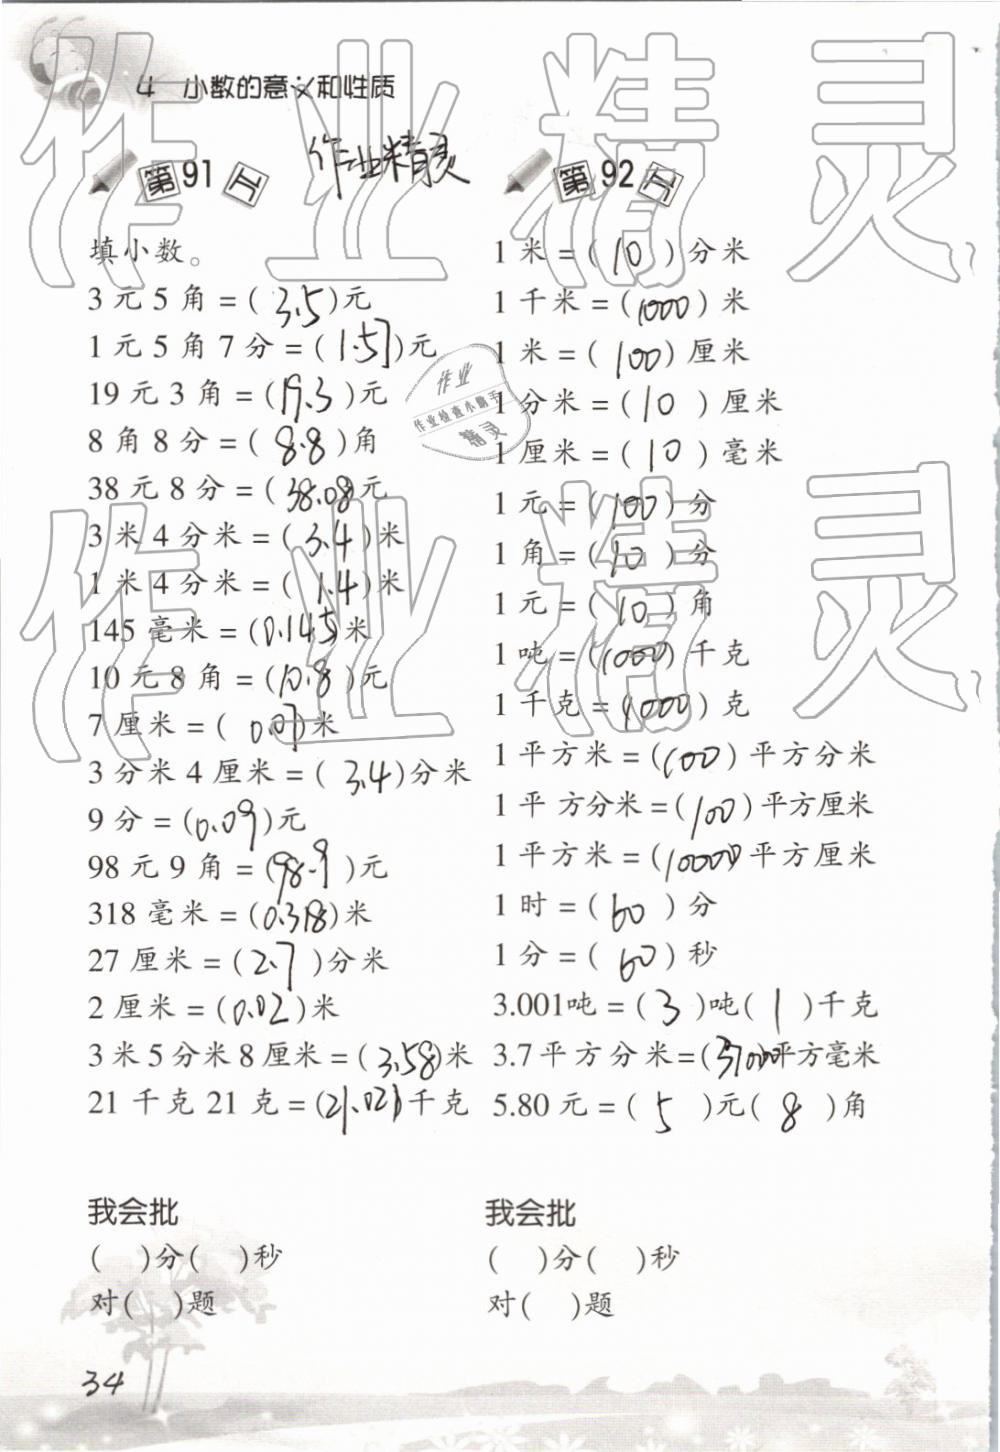 4 小数的意义和性质
第91天
作业精灵
填小数。
3元5角=(3.5)元
1元5角7分=(1.57)元
19元3角=(19.3)元
8角8分=(8.8)角
38元8分=(38.08)元
3米4分米=(3.4)米
1米4分米=(1.4)米
145毫米=(0.145)米
10元8角=(10.8)元
7厘米=(0.07)米
3分米4厘米=(3.4)分米
9分=(0.09)元
98元9角=(98.9)元
318毫米=(0.318)米
27厘米=(2.7)分米
2厘米=(0.02)米
3米5分米8厘米=(3.58)米
21千克21克=(21.021)千克
我会批
( )分( )秒
对( )题
第92天
1米=(10)分米
1千米=(1000)米
1米=(100)厘米
1分米=(10)厘米
1厘米=(10)毫米
1元=(100)分
1角=(10)分
1元=(10)角
1吨=(1000)千克
1千克=(1000)克
1平方米=(100)平方分米
1平方分米=(100)平方厘米
1平方米=(10000)平方厘米
1时=(60)分
1分=(60)秒
3.001吨=(3)吨(1)千克
3.7平方分米=(37000)平方毫米
5.80元=(5)元(8)角
我会批
( )分( )秒
对( )题
34
作业精灵
作业精灵
作业
作业检查小助手
精灵